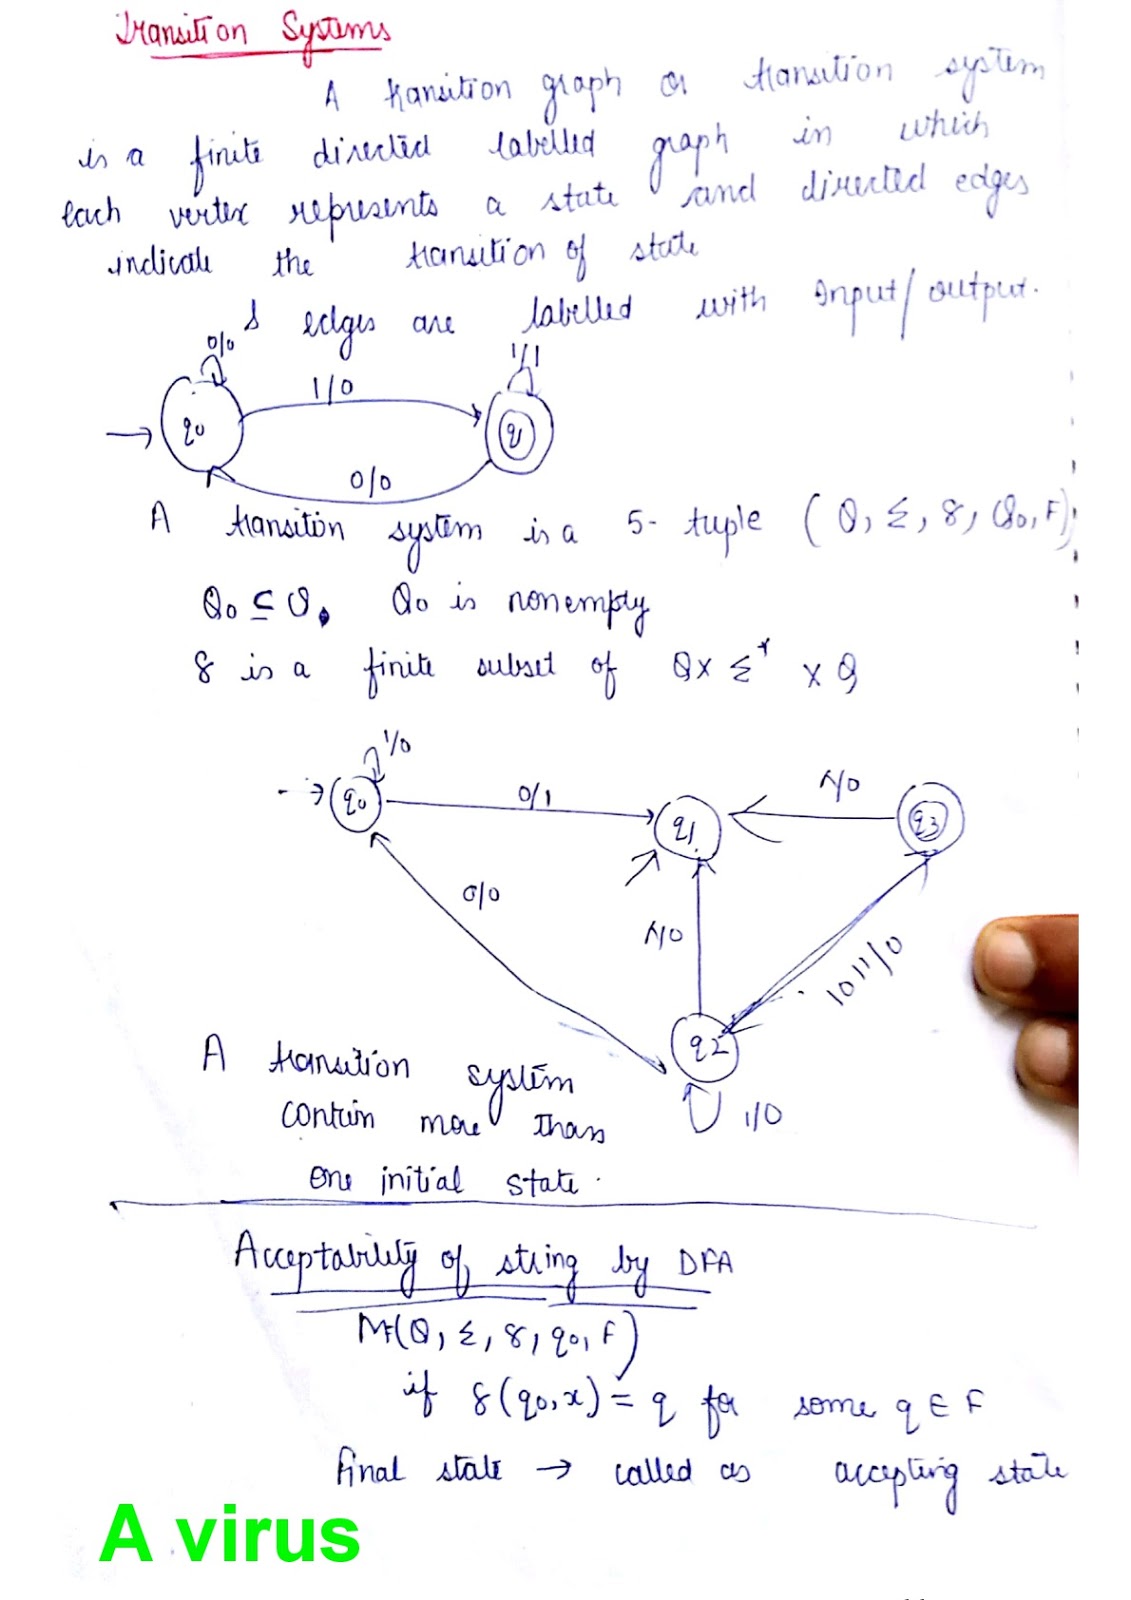 Transition Systems
A transition graph or transition system
is a finite directed labelled graph in which
each vertex represents a state and directed edges
indicate the transition of state
& edges are labelled with Input/output.
0/0
1/1
1/0
q0
q1
0/0
A transition system is a 5-tuple (Q, Σ, δ, Q0, F)
Q0 ⊆ Q, Q0 is nonempty
δ is a finite subset of Q x Σ* x Q
1/0
q0
0/1
q1
λ/0
q3
0/0
λ/0
1011/0
q2
1/0
A transition system
contain more than
one initial state.
Acceptability of string by DFA
M=(Q, Σ, δ, q0, F)
if δ(q0,x) = q for some q ∈ F
final state → called as accepting state
A virus